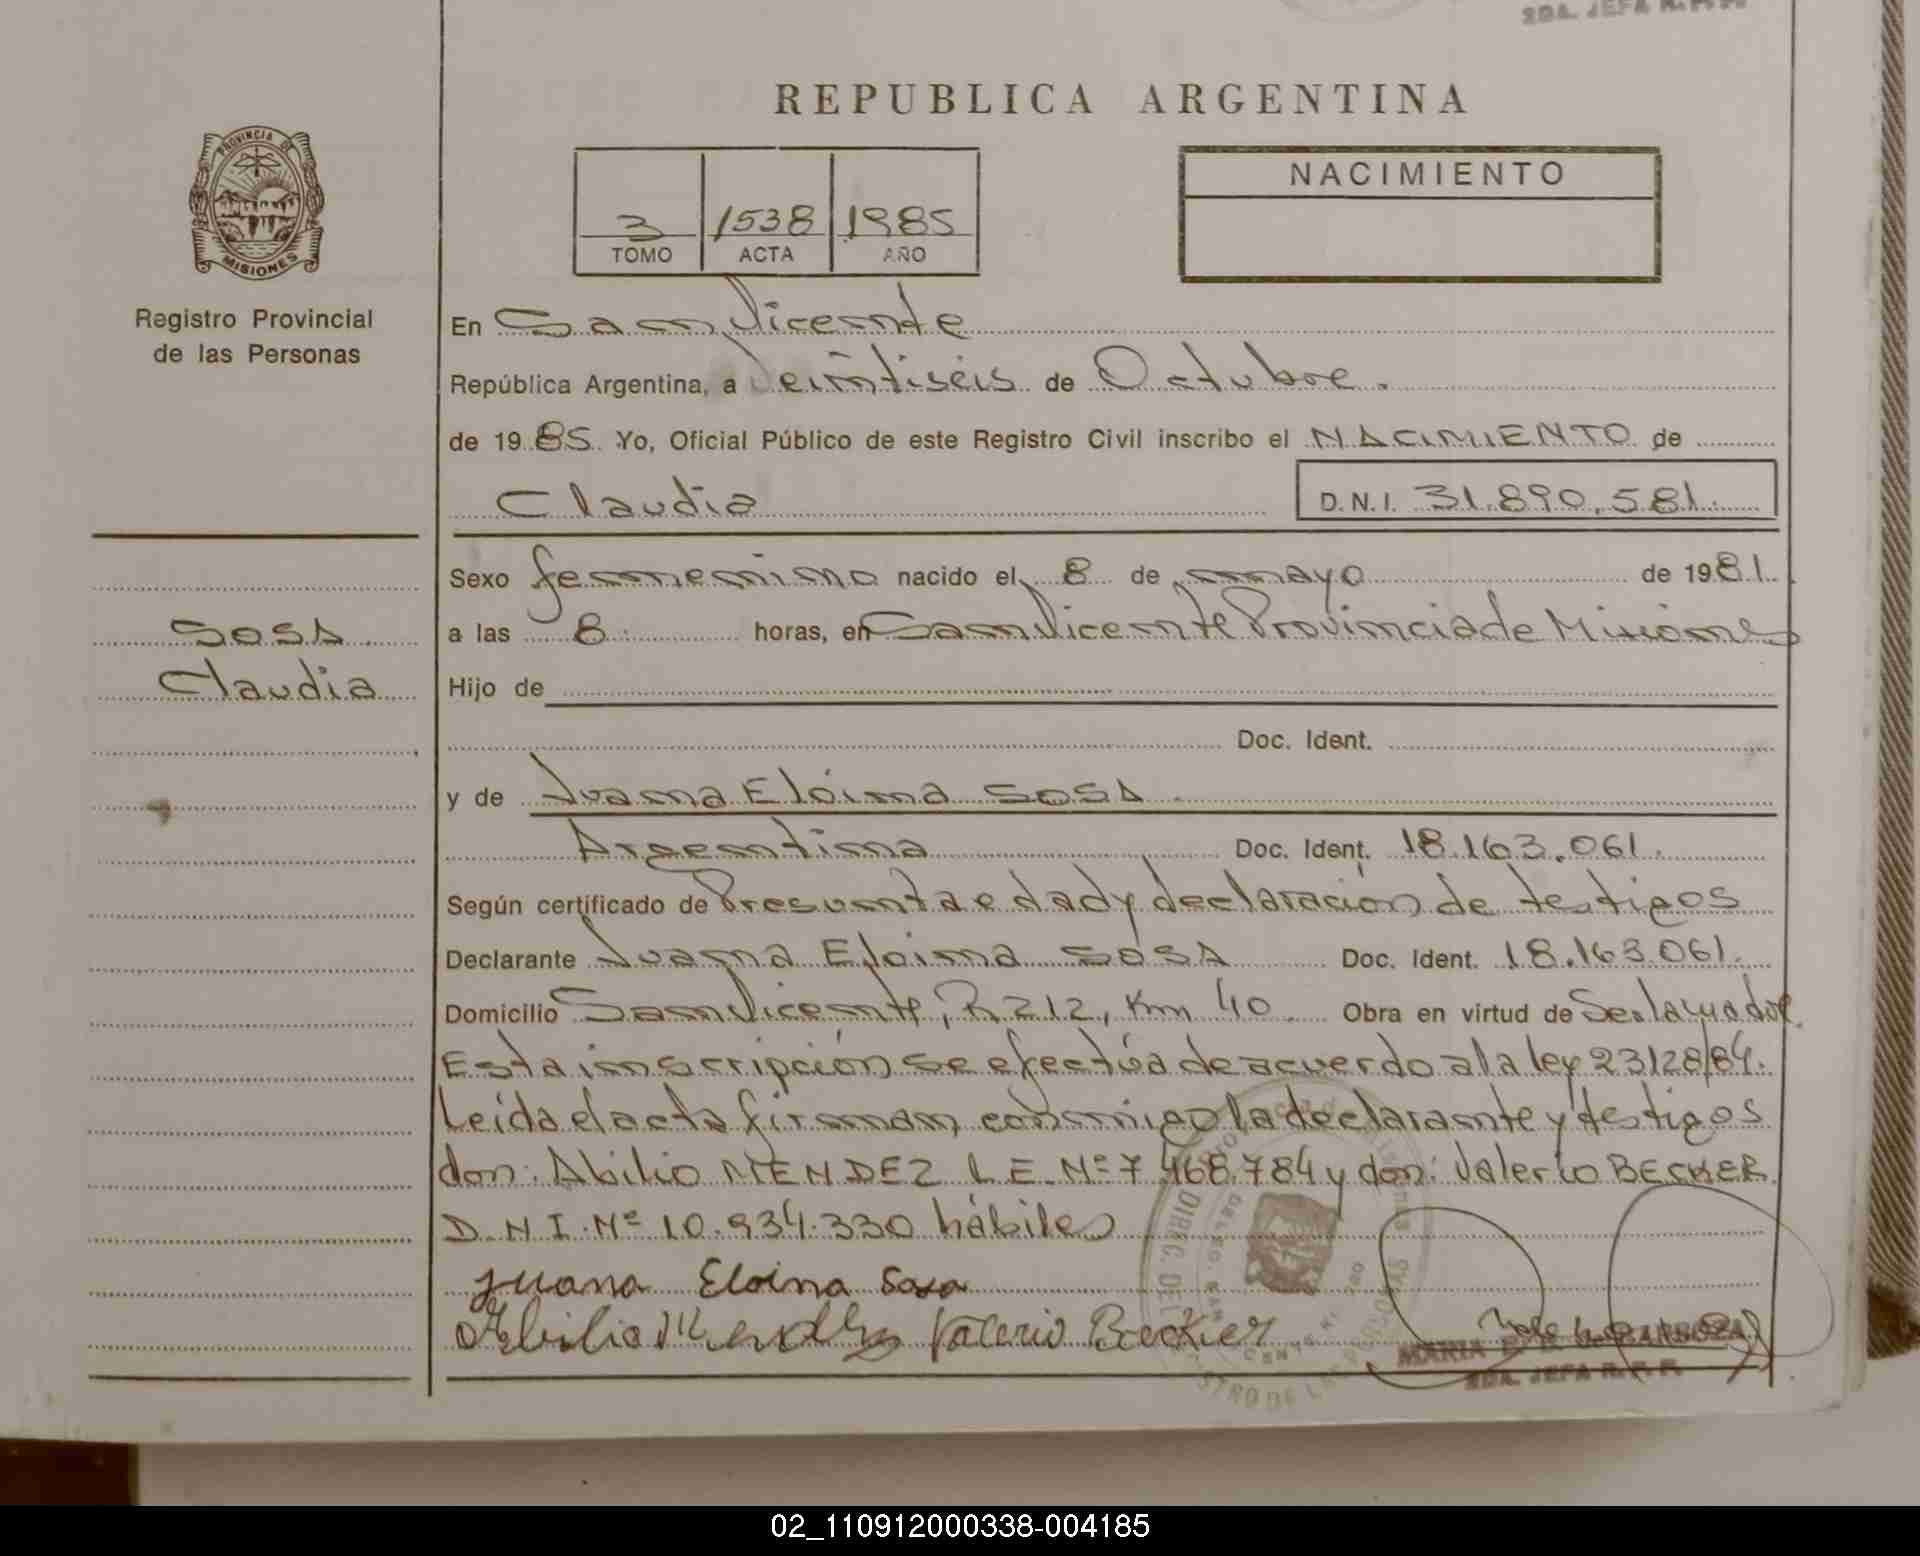 SDA. JEFA R. P. P.
REPUBLICA ARGENTINA
PROVINCIA DE
MISIONES
Registro Provincial
de las Personas
3 1538 1985
TOMO ACTA AÑO
NACIMIENTO
En San Vicente
República Argentina, a Veintiseis de Octubre.
de 1985 Yo, Oficial Público de este Registro Civil inscribo el NACIMIENTO de
Claudia D.N.I. 31.890.581.
Sexo femenino nacido el 8 de mayo de 1981
SOSA
Claudia
a las 8 horas, en San Vicente Provincia de Misiones
Hijo de
Doc. Ident.
y de Juana Eloina SOSA
Argentina Doc. Ident. 18.163.061.
Según certificado de Presunta edad y declaración de testigos
Declarante Juana Eloina SOSA Doc. Ident. 18.163.061.
Domicilio San Vicente, R 212, Km 40. Obra en virtud de
Esta inscripción se efectúa de acuerdo a la ley 23128/84.
Leída el acta firman conmigo la declarante y testigos
don: Abilio MENDEZ L.E. Nº 7.468.784 y don: Valerio BECKER
D.N.I. Nº 10.934.330 hábiles
Juana Eloina Sosa
Abilio Mendez Valerio Becker
MARIA
SDA. JEFA R. P. P.
02_110912000338-004185